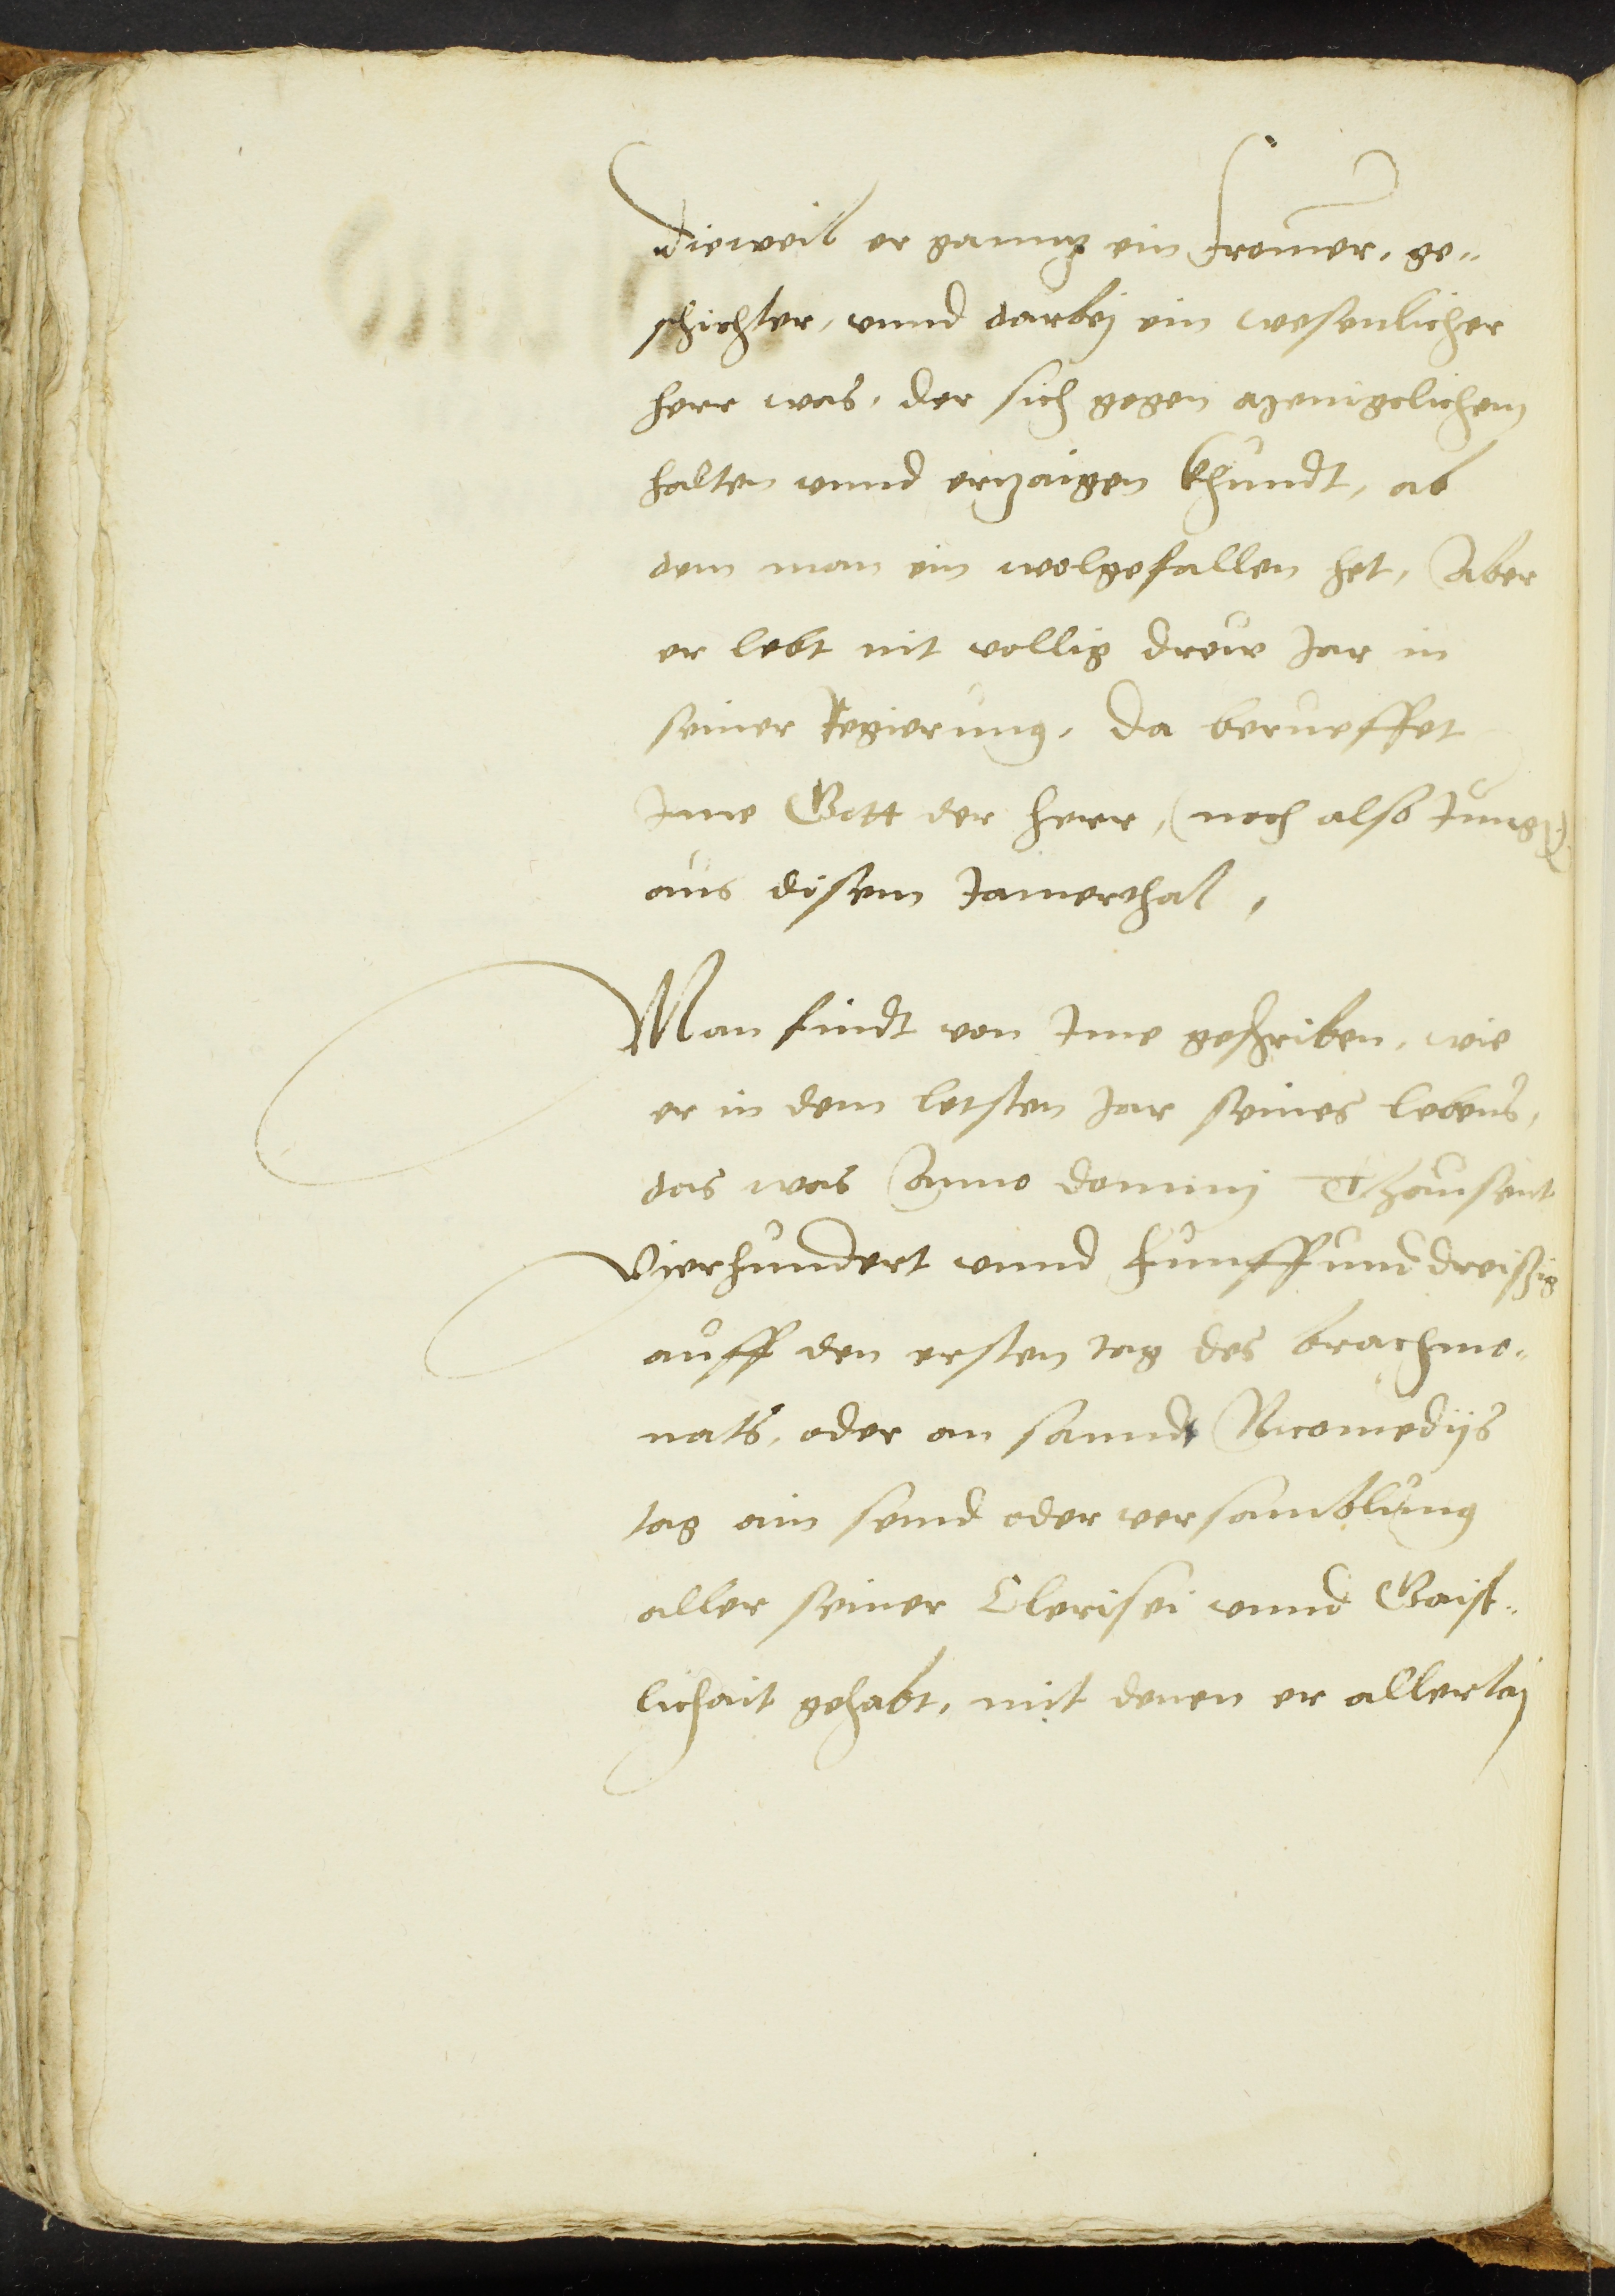 Dieweil er ganntz ein fromer, ge-
schichter, vnnd darbej ein wesenlicher
herr was, der sich gegen menigclichem
halten vnnd ertzaigen khundt, ab
dem man ein wolgefallen het, Aber
er lebt nit vollig drew Jar in
seiner Regierung, da berueffet
Jme Gott der herr, (noch also Jung)
aus disem Jamerthal,
Man findt von Jme geschriben, wie
er in dem letsten Jar seines lebens,
das was Anno dominj Thausent
Vierhundert vnnd Funffunddreissig
auff den ersten tag des brachmo-
nats, oder an sannd Nicomedijs
tag ain send oder versamblung
aller seiner Clerisei vnnd Gaist-
lichait gehabt, mit denen er allerlaj